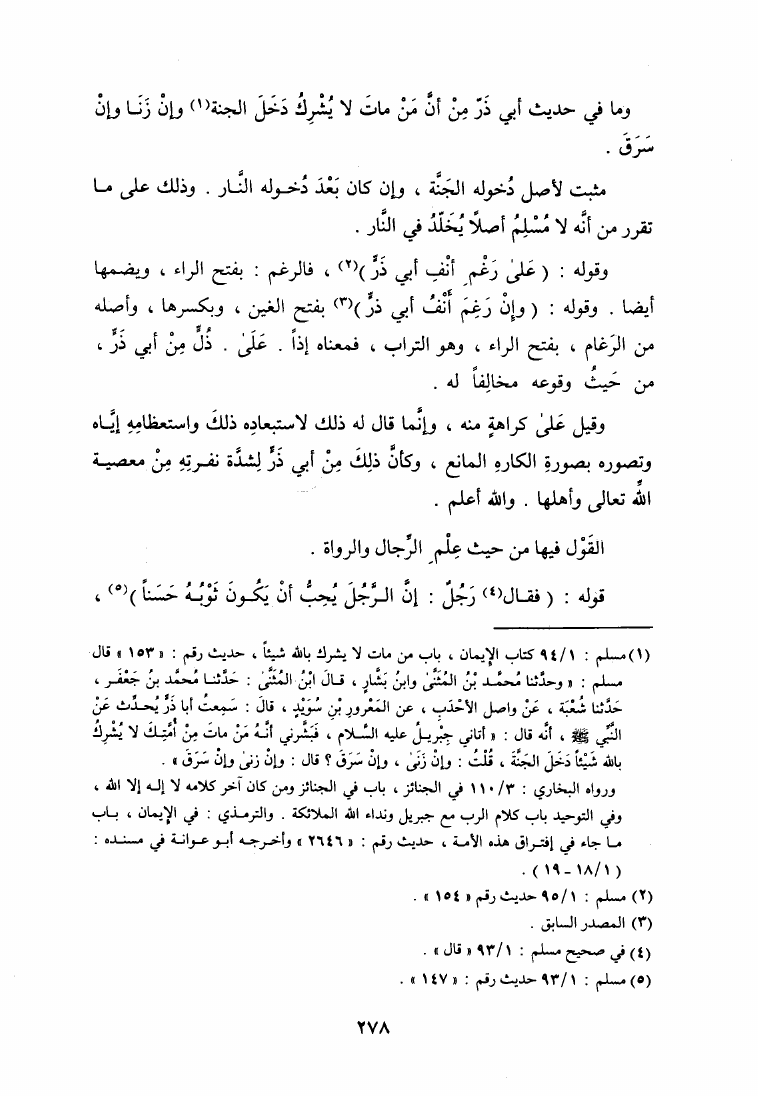 وما في حديث أبي ذَرّ مِنْ أنَّ مَنْ ماتَ لا يُشْرِكُ دَخَلَ الجنة(١) وإنْ زَنَـا وإنْ
سَرَقَ .
مثبت لأصل دُخوله الجَنَّة ، وإن كان بَعْدَ دُخـوله النَّـار . وذلك على مـا
تقرر من أنَّه لا مُسْلِمُ أصلًا يُخَلَّدُ في النَّار .
وقوله : ( عَلىٰ رَغْمِ أنْفِ أبي ذَرٍّ )(٢) ، فالرغم : بفتح الراء ، ويضمها
أيضا . وقوله : ( وإنْ رَغِمَ أَنْفُ أبي ذرٍّ )(٣) بفتح الغين ، وبكسرها ، وأصله
من الرَغام ، بفتح الراء ، وهو التراب ، فمعناه إذاً . عَلَىٰ . ذُلٍّ مِنْ أبي ذَرٍّ ،
من حَيثُ وقوعه مخالِفاً له .
وقيل عَلىٰ كراهةٍ منه ، وإنَّما قال له ذلك لاستبعاده ذلكَ واستعظامِهِ إيَّـاه
وتصوره بصورةِ الكارهِ المانع ، وكأنَّ ذلِكَ مِنْ أبي ذَرٍّ لِشدَّة نفـرتِهِ مِنْ معصيـة
اللهِ تعالى وأهلها . والله أعلم .
القَوْل فيها من حيث عِلْمِ الرِّجال والرواة .
قوله : ( فقـال(٤) رَجُلٌ : إنَّ الـرَّجُلَ يُحِبُّ أنْ يَكُـونَ ثَوْبُـهُ حَسَناً )(٥) ،
(١) مسلم : ٩٤/١ كتاب الإيمان ، باب من مات لا يشرك بالله شيئاً ، حديث رقم : « ١٥٣ » قال
مسلم : « وحدَّثنا مُحمَّـد بْنُ المُثَنَّىٰ وابنُ بَشَّارٍ ، قـالَ ابْنُ المُثَنَّىٰ : حَدَّثنـا مُحمَّد بنُ جَعْفَر ،
حَدَّثنا شُعْبَة ، عَنْ واصل الأحْدَبِ ، عن المَعْرورِ بْنِ سُوَيْدٍ ، قالَ : سَمِعتُ أبا ذَرٍّ يُحـدِّث عَنْ
النَّبِيِّ ﷺ ، أنَّه قال : « أتاني جِبْريـلُ عليه السَّـلام ، فَبَشَّرني أنَّـهُ مَنْ ماتَ مِنْ أُمَّتِـكَ لا يُشْرِكُ
بالله شَيْئاً دَخَلَ الجَنَّةَ ، قُلْتُ : وإنْ زَنَىٰ ، وإنْ سَرَقَ ؟ قال : وإنْ زنىٰ وإنْ سَرَقَ » .
ورواه البخاري : ١١٠/٣ في الجنائز ، باب في الجنائز ومن كان آخر كلامه لا إلـه إلا الله ،
وفي التوحيد باب كلام الرب مع جبريل ونداء الله الملائكة . والترمـذي : في الإيمان ، بـاب
مـا جاء في إفتـراق هذه الأمـة ، حديث رقم : « ٢٦٤٦ » وأخـرجـه أبـو عـوانـة في مسنـده :
( ١٨/١ - ١٩ ) .
(٢) مسلم : ٩٥/١ حديث رقم « ١٥٤ » .
(٣) المصدر السابق .
(٤) في صحيح مسلم : ٩٣/١ « قال » .
(٥) مسلم : ٩٣/١ حديث رقم : « ١٤٧ » .
٢٧٨